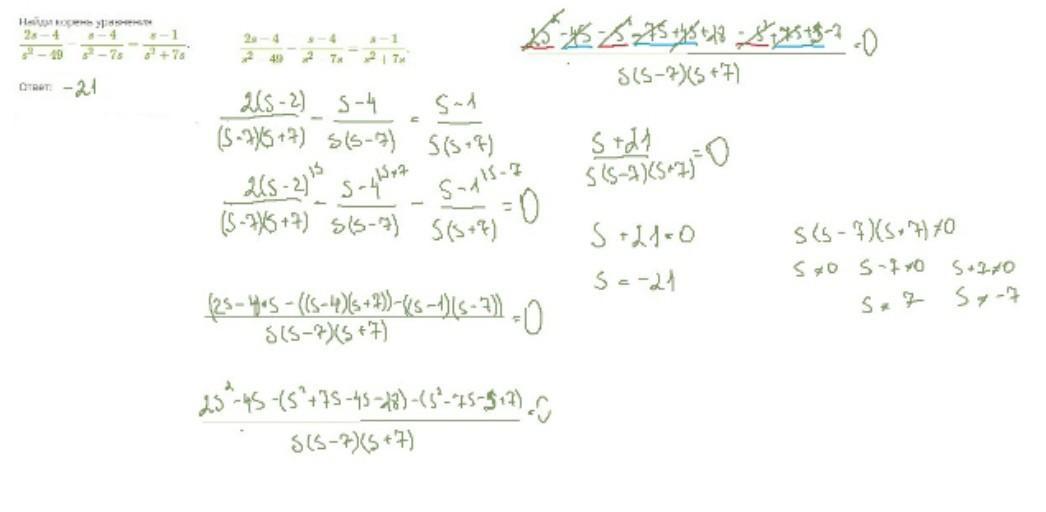 Найди корень уравнения
(2s − 4)/(s² − 49) − (s − 4)/(s² − 7s) = (s − 1)/(s² + 7s).
Ответ: -21
(2s − 4)/(s² − 49) − (s − 4)/(s² − 7s) = (s − 1)/(s² + 7s).
2(s-2)/((s-7)(s+7)) - (s-4)/(s(s-7)) = (s-1)/(s(s+7))
2(s-2)^{|s}/((s-7)(s+7)) - (s-4)^{|s+7}/(s(s-7)) - (s-1)^{|s-7}/(s(s+7)) = 0
((2s-4)•s - ((s-4)(s+7)) - ((s-1)(s-7)))/(s(s-7)(s+7)) = 0
(2s² - 4s - (s² + 7s - 4s - 28) - (s² - 7s - s + 7))/(s(s-7)(s+7)) = 0
(2s² - 4s - s² - 7s + 4s + 28 - s² + 7s + s - 7)/(s(s-7)(s+7)) = 0
(s + 21)/(s(s-7)(s+7)) = 0
s + 21 = 0
s = -21
s(s-7)(s+7) ≠ 0
s ≠ 0 s-7 ≠ 0 s+7 ≠ 0
s ≠ 7 s ≠ -7